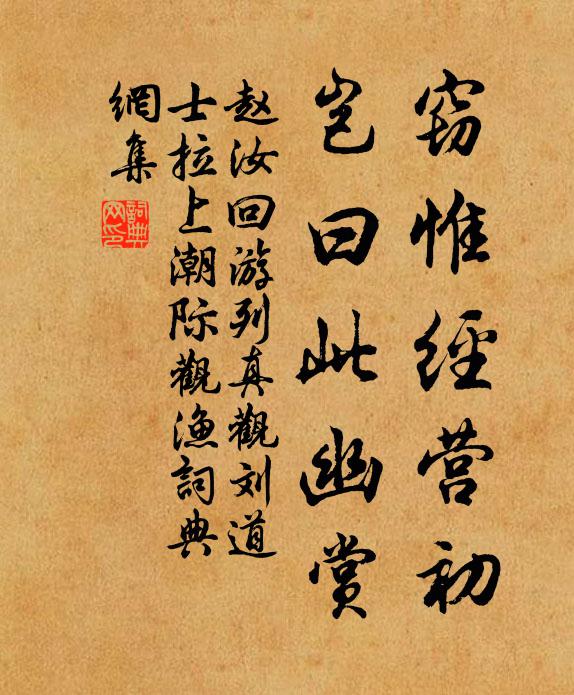 窃惟經营初
岂曰此幽赏
赵汝回游列真觀刘道
士拉上潮际觀渔詞典
網集
詞典
网印